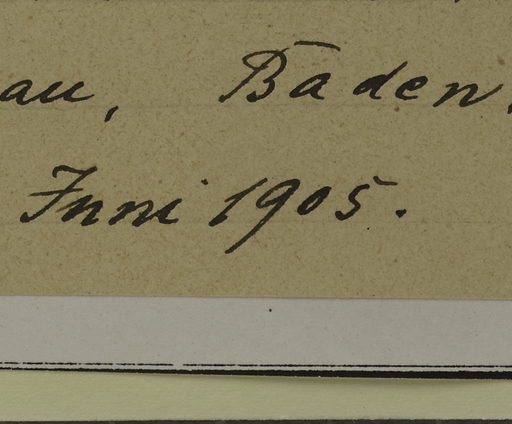 au, Baden,
Juni 1905.